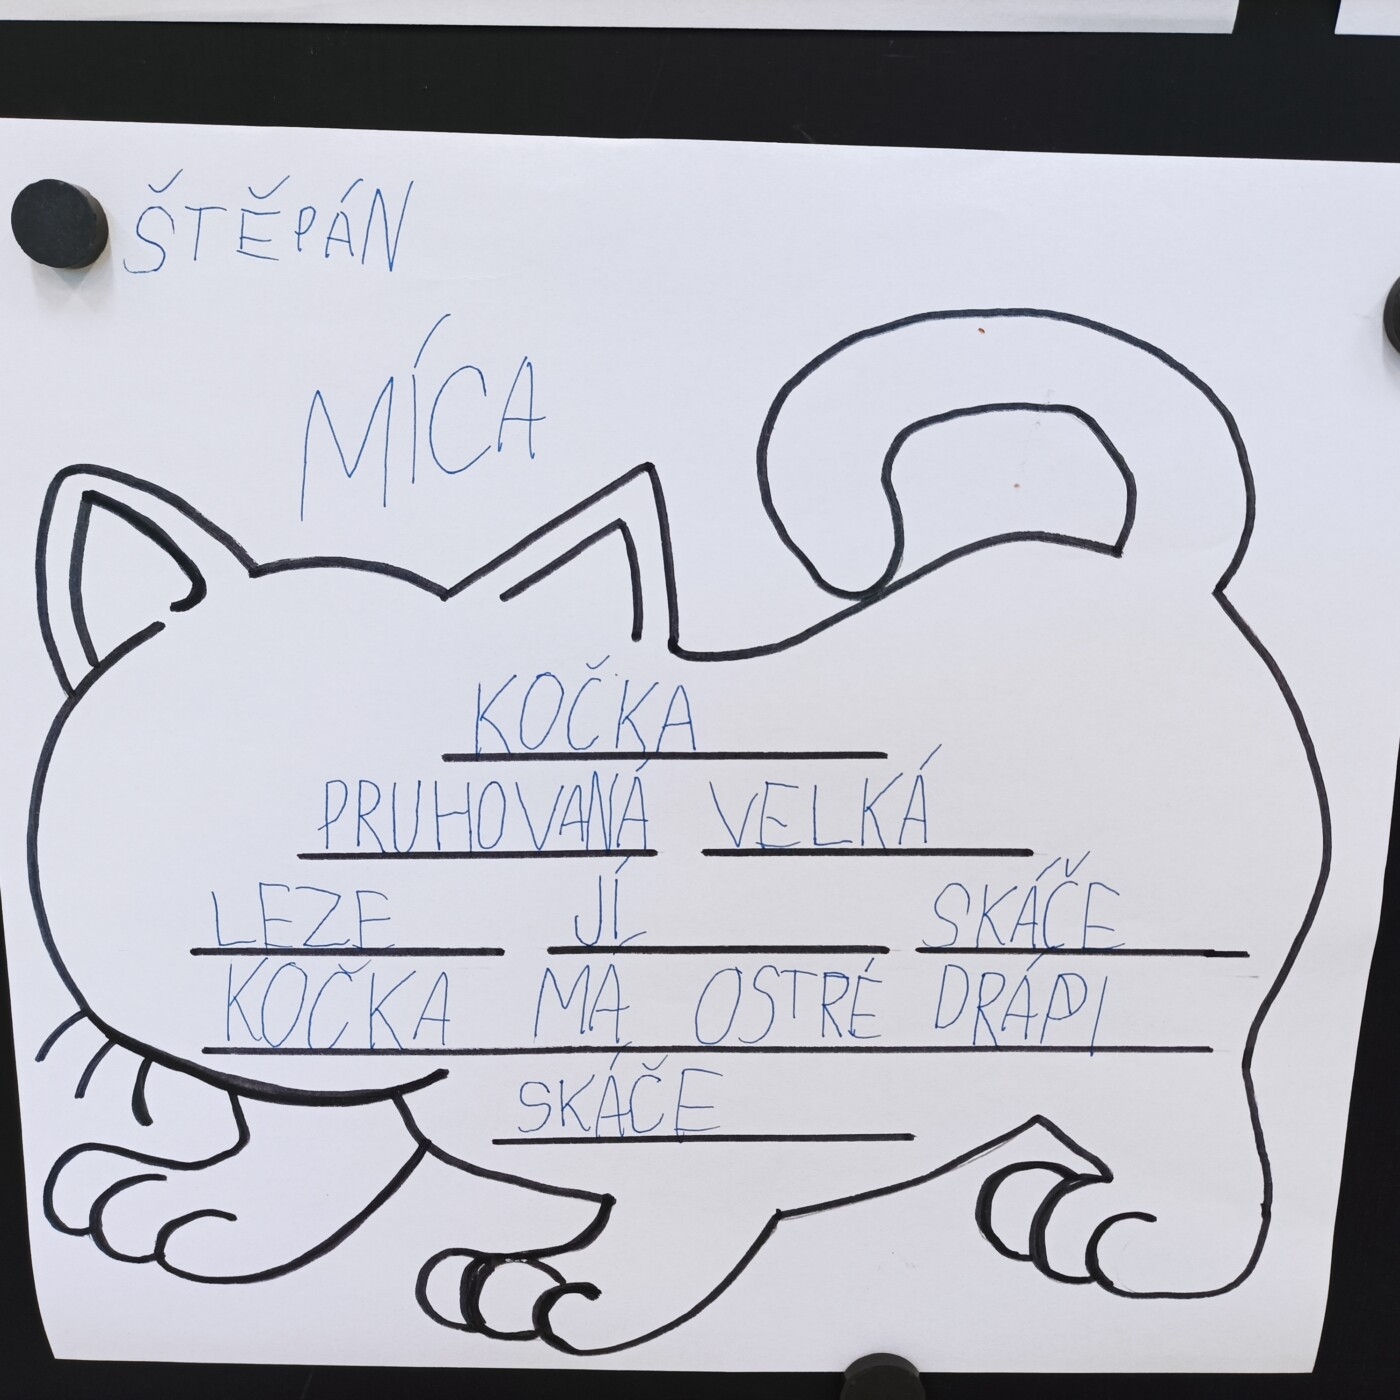 ŠTĚPÁN
MÍCA
KOČKA
PRUHOVANÁ VELKÁ
LEZE JÍ SKÁČE
KOČKA MÁ OSTRÉ DRÁPI
SKÁČE